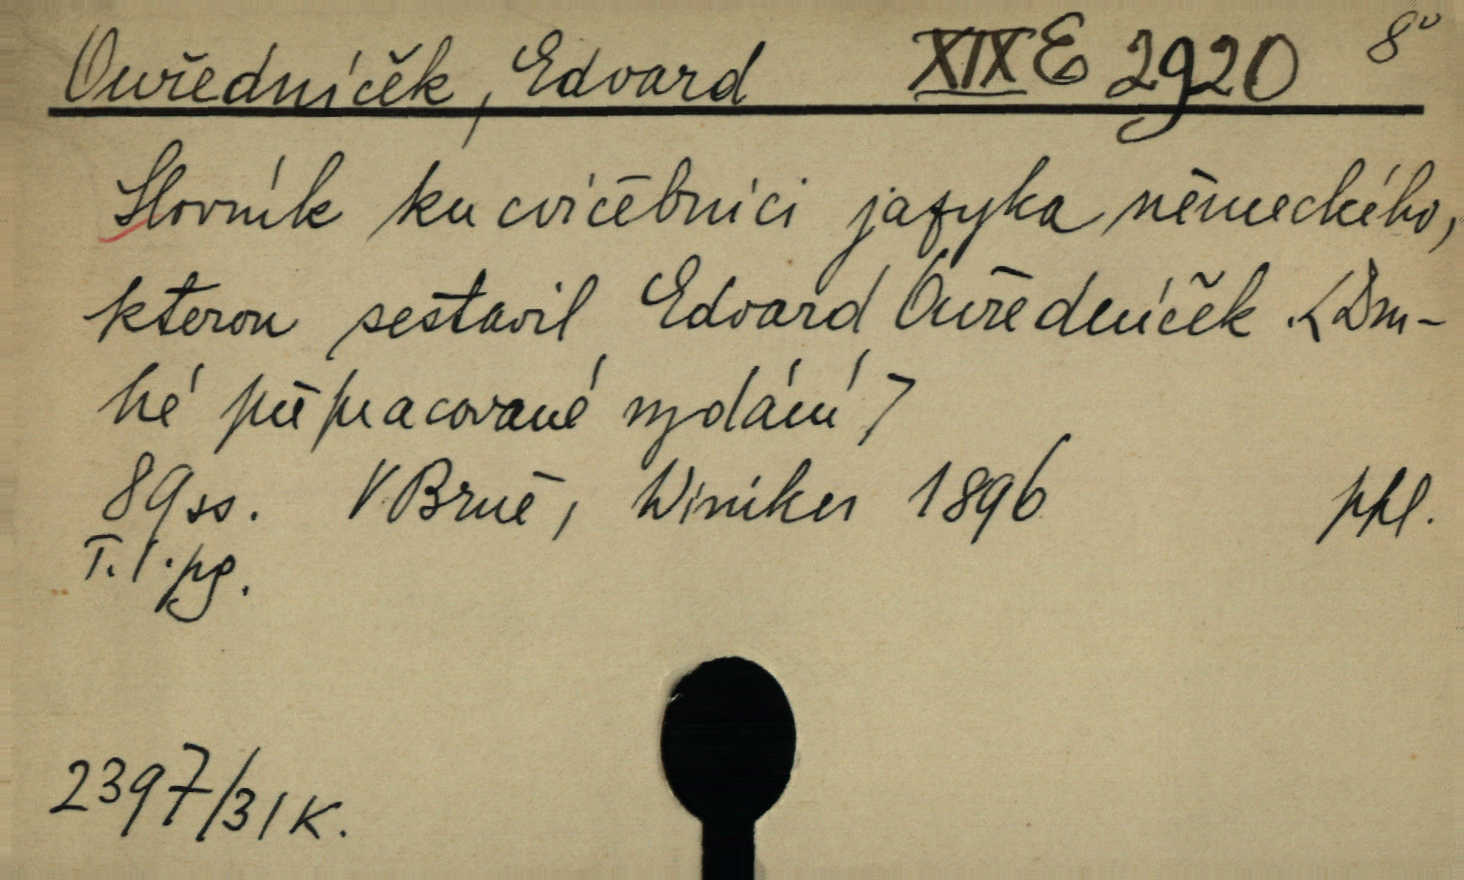 Ouředníček, Edvard XIX E 2920 8°
Slovník ku cvičebnici jazyka německého,
kterou sestavil Edvard Ouředníček. <Dru-
hé přepracované vydání>
89 ss. V Brně, Winiker 1896 ppl.
T. I. pg.
2397/31 K.